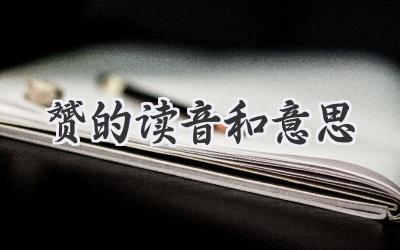 赟的读音和意思